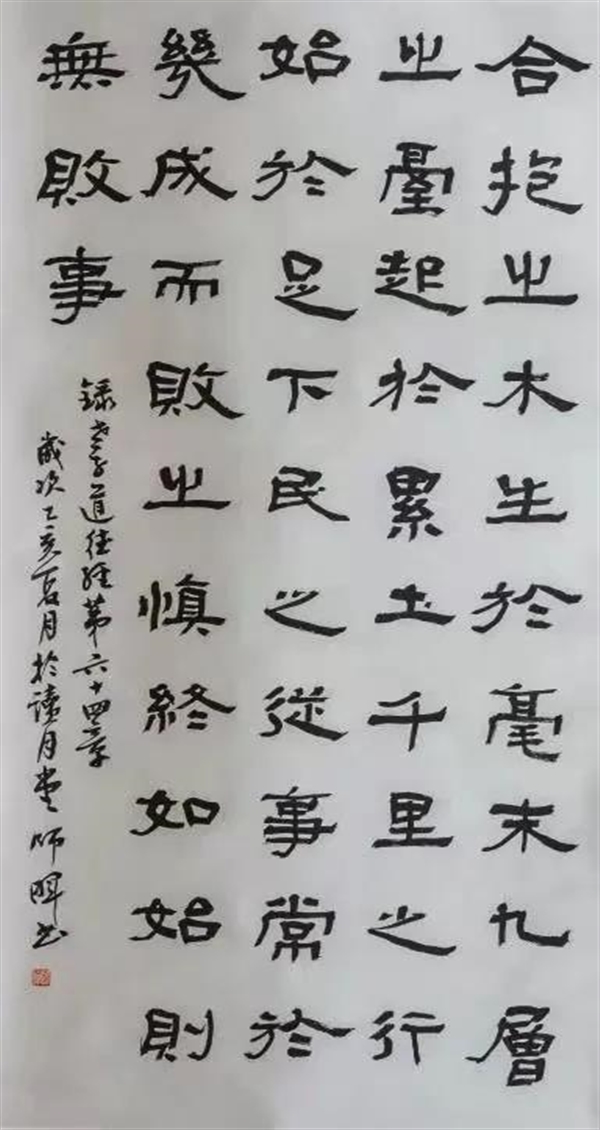 合抱之木生於毫末九層
之臺起於累土千里之行
始於足下民之從事常於
幾成而敗之慎終如始則
無敗事
錄老子道德經第六十四章
歲次乙亥夏月於讀月堂師暉書